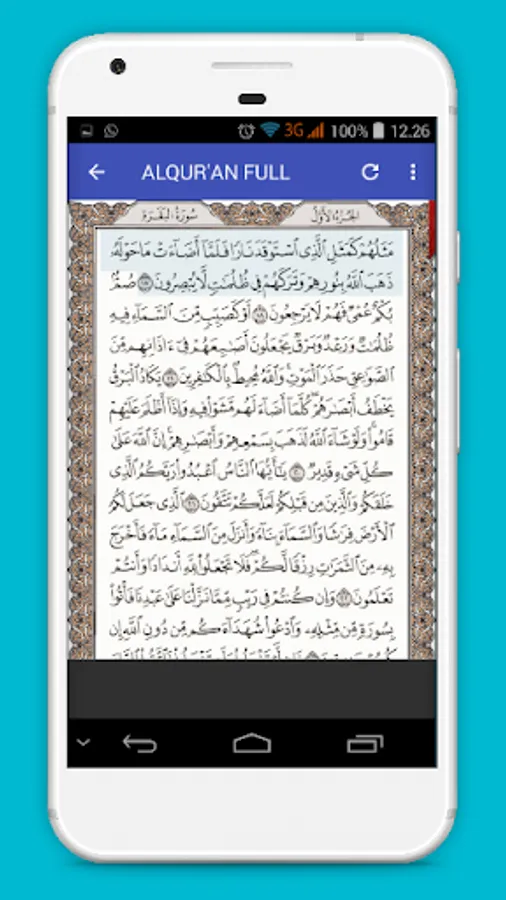 3G 100% 12.26
ALQUR'AN FULL
سُورَةُ البَقَرَة الجُزءُ الأَوَّلُ
مَثَلُهُمْ كَمَثَلِ الَّذِي اسْتَوْقَدَ نَارًا فَلَمَّا أَضَاءَتْ مَا حَوْلَهُ
ذَهَبَ اللَّهُ بِنُورِهِمْ وَتَرَكَهُمْ فِي ظُلُمَاتٍ لَّا يُبْصِرُونَ ١٧ صُمٌّ
بُكْمٌ عُمْيٌ فَهُمْ لَا يَرْجِعُونَ ١٨ أَوْ كَصَيِّبٍ مِّنَ السَّمَاءِ فِيهِ
ظُلُمَاتٌ وَرَعْدٌ وَبَرْقٌ يَجْعَلُونَ أَصَابِعَهُمْ فِي ءَاذَانِهِم مِّنَ
الصَّوَاعِقِ حَذَرَ الْمَوْتِ وَاللَّهُ مُحِيطٌ بِالْكَافِرِينَ ١٩ يَكَادُ الْبَرْقُ
يَخْطَفُ أَبْصَارَهُمْ كُلَّمَا أَضَاءَ لَهُم مَّشَوْا فِيهِ وَإِذَا أَظْلَمَ عَلَيْهِمْ
قَامُوا وَلَوْ شَاءَ اللَّهُ لَذَهَبَ بِسَمْعِهِمْ وَأَبْصَارِهِمْ إِنَّ اللَّهَ عَلَى
كُلِّ شَيْءٍ قَدِيرٌ ٢٠ يَاأَيُّهَا النَّاسُ اعْبُدُوا رَبَّكُمُ الَّذِي
خَلَقَكُمْ وَالَّذِينَ مِن قَبْلِكُمْ لَعَلَّكُمْ تَتَّقُونَ ٢١ الَّذِي جَعَلَ لَكُمُ
الْأَرْضَ فِرَاشًا وَالسَّمَاءَ بِنَاءً وَأَنزَلَ مِنَ السَّمَاءِ مَاءً فَأَخْرَجَ
بِهِ مِنَ الثَّمَرَاتِ رِزْقًا لَّكُمْ فَلَا تَجْعَلُوا لِلَّهِ أَندَادًا وَأَنتُمْ
تَعْلَمُونَ ٢٢ وَإِن كُنتُمْ فِي رَيْبٍ مِّمَّا نَزَّلْنَا عَلَى عَبْدِنَا فَأْتُوا
بِسُورَةٍ مِّن مِّثْلِهِ وَادْعُوا شُهَدَاءَكُم مِّن دُونِ اللَّهِ إِن